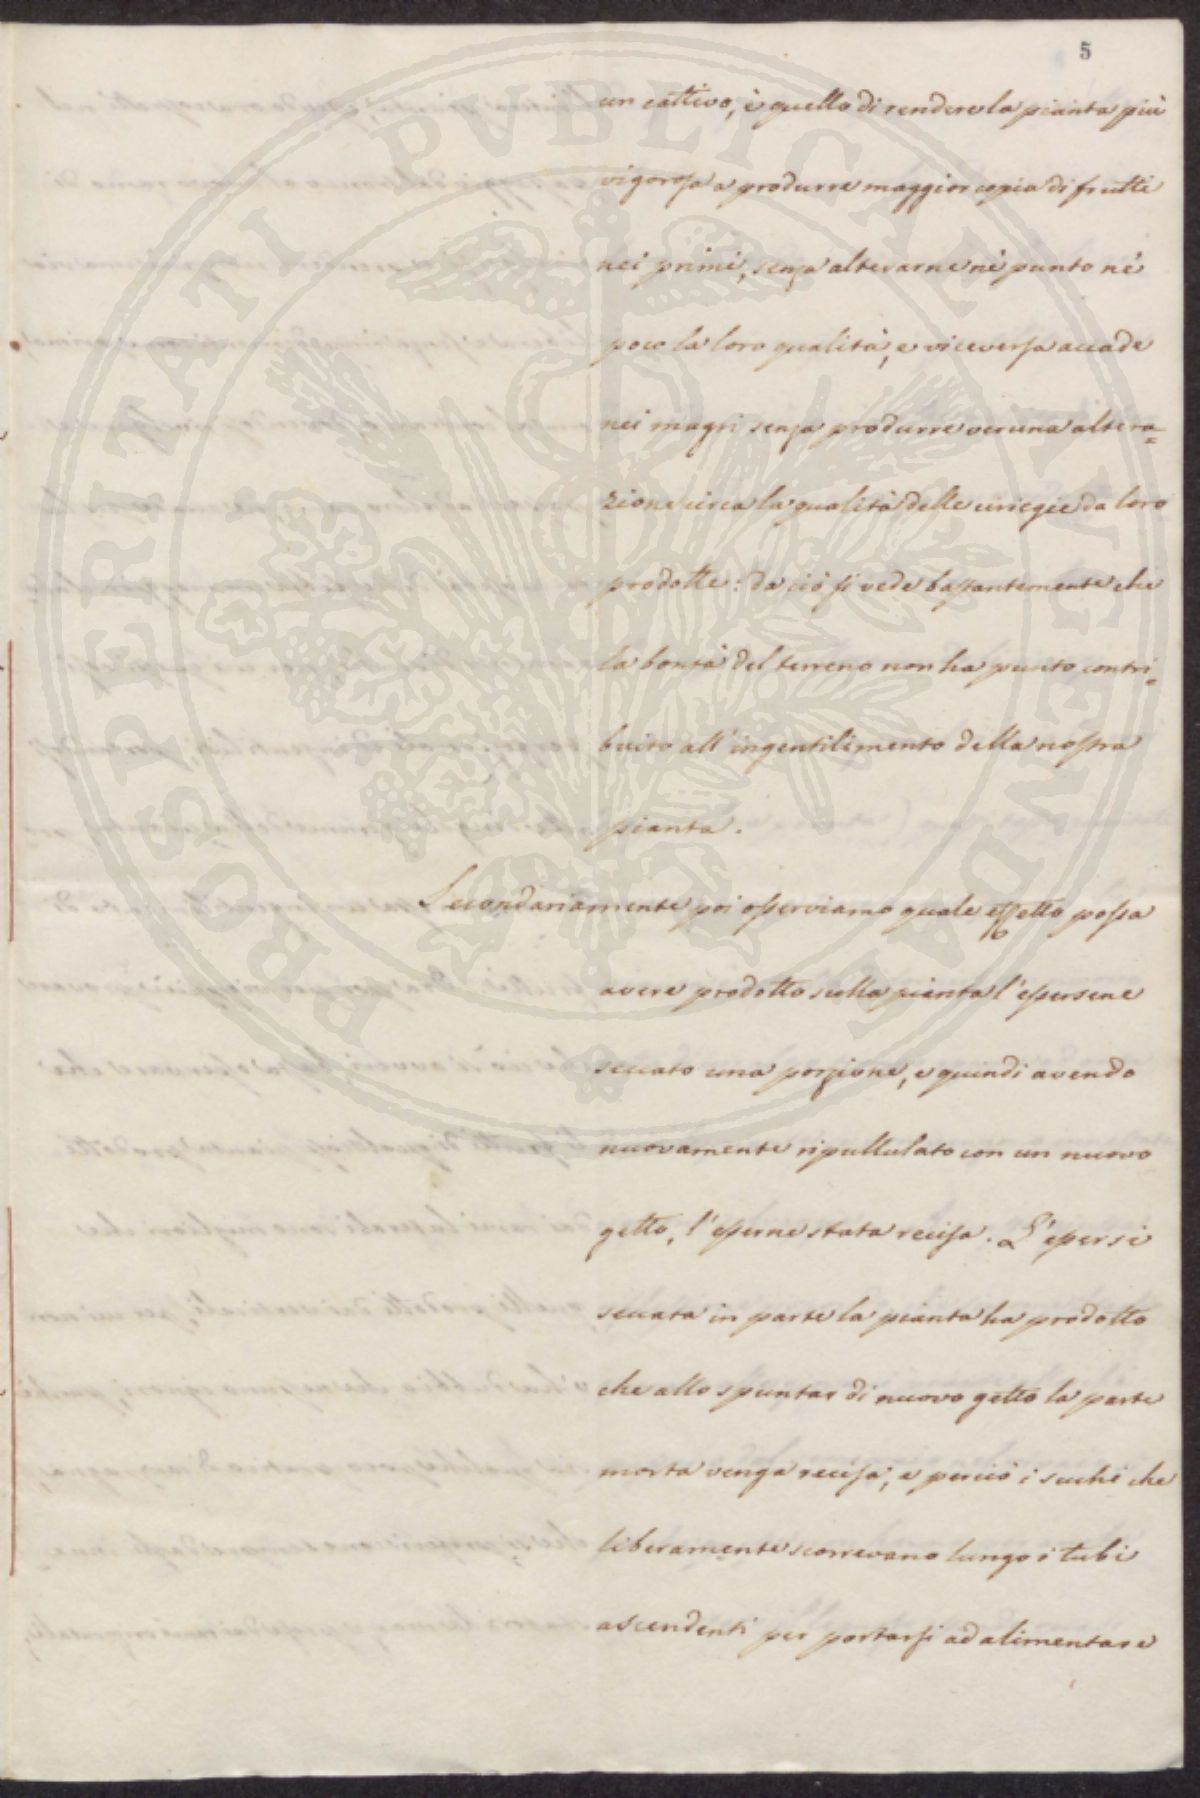 5
un cattivo, è quello di rendere la pianta più
vigorosa a produrre maggior copia di frutti
nei primi, senza alterarne nè punto nè
poco la loro qualità, e viceversa accade
nei magri senza produrre veruna altera=
zione circa la qualità delle ciriegie da loro
prodotte: da ciò si vede bastantemente che
la bontà del terreno non ha punto contri=
buito all'ingentilimento della nostra
pianta.
Secondariamente poi osserviamo quale effetto possa
avere prodotto sulla pianta l'essersene
seccato una porzione, e quindi avendo
nuovamente ripullulato con un nuovo
getto, l'esserne stata recisa. L'essersi
seccata in parte la pianta ha prodotto
che allo spuntar di nuovo getto la parte
morta venga recisa, e perciò i succhi che
liberamente scorrevano lungo i tubi
ascendenti per portarsi ad alimentare
PROSPERITATI PVBLICAE AVGENDAE